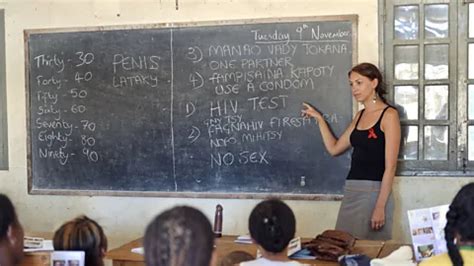 Tuesday 9th November
Thirty - 30
Forty - 40
Fifty - 50
Sixty - 60
Seventy - 70
Eighty - 80
Ninety - 90
PENIS
LATAKY
3) MANAO VADY TOKANA
ONE PARTNER
4) FAMPISAINA KAPOTY
USE A CONDOM
1) HIV TEST
2)
MIHITSY
NO SEX